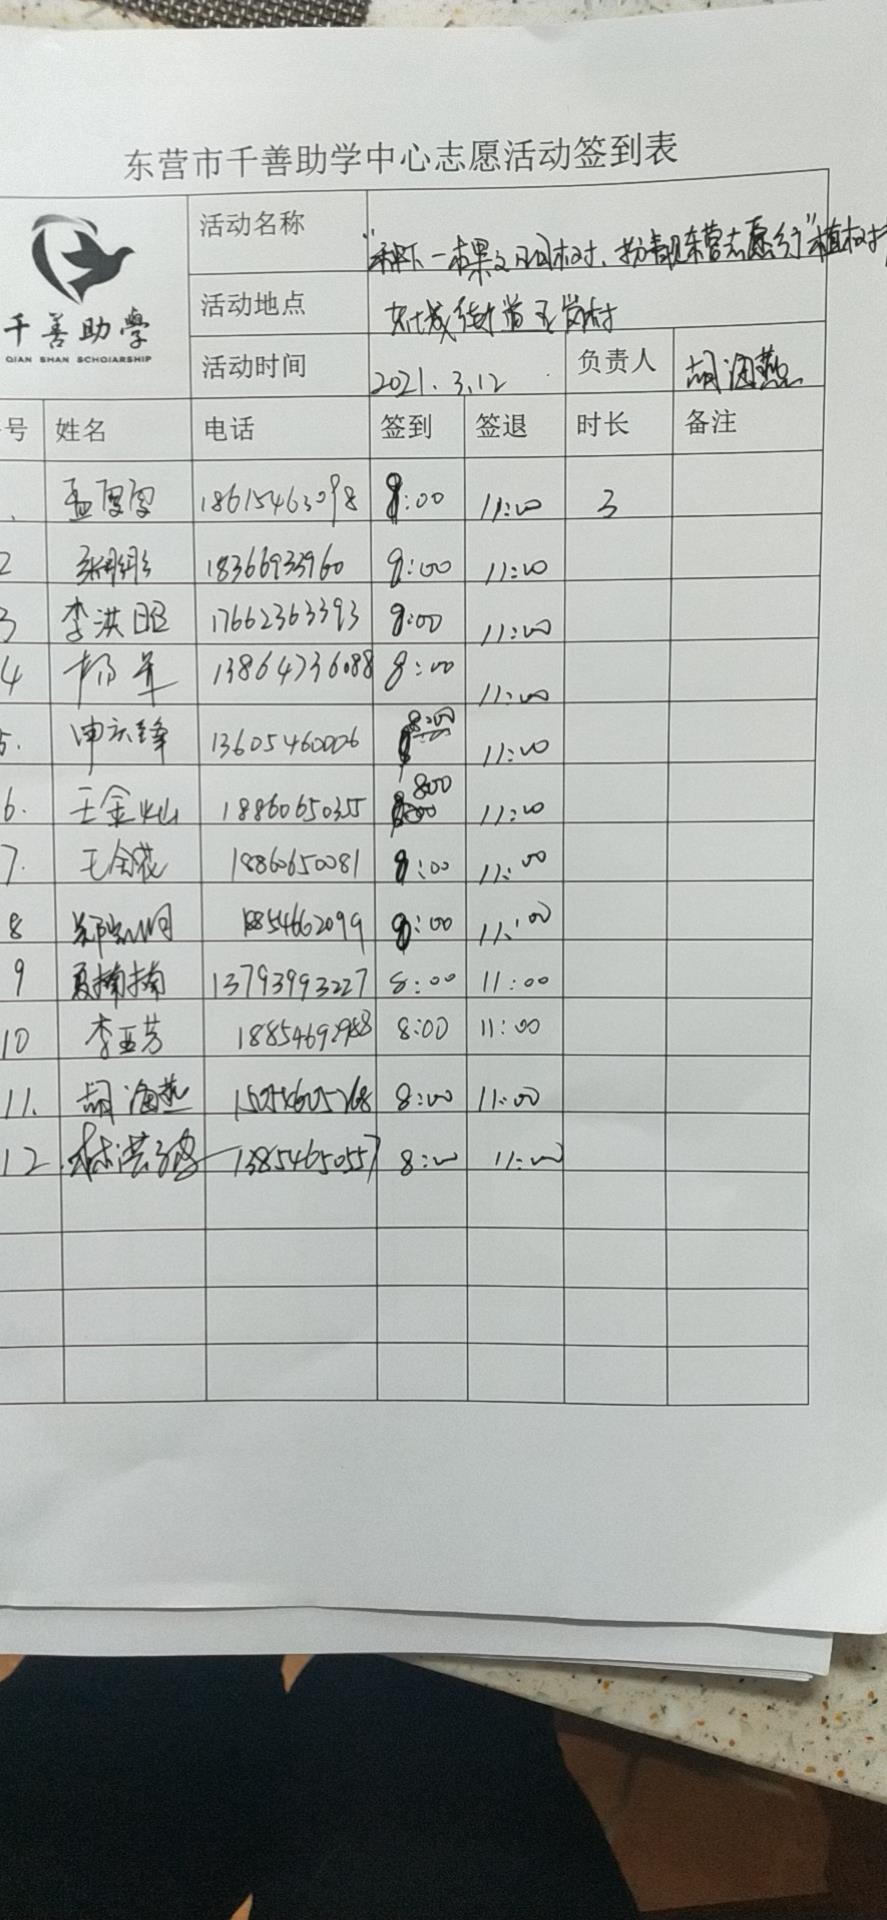 东营市千善助学中心志愿活动签到表
千善助學
QIAN SHAN SCHOIARSHIP
活动名称 "种下一棵文明树、扮靓东营志愿行"植树
活动地点 街道 村
活动时间 2021.3.12 负责人 胡海燕
号 姓名 电话 签到 签退 时长 备注
孟 18615463098 8:00 11:00 3
2 18366933960 8:00 11:00
3 李洪昭 17662363393 8:00 11:00
4 杨军 13864736088 8:00 11:00
5. 申云锋 13605460006 8:00 11:00
6. 王金灿 18860650355 800 11:00
7. 王金花 18860650081 8:00 11:00
8 郑 18854662099 8:00 11:00
9 夏楠楠 13793993227 8:00 11:00
10 李亚芳 18854692988 8:00 11:00
11. 胡海燕 8:00 11:00
12. 林洪 13854650557 8:00 11:00